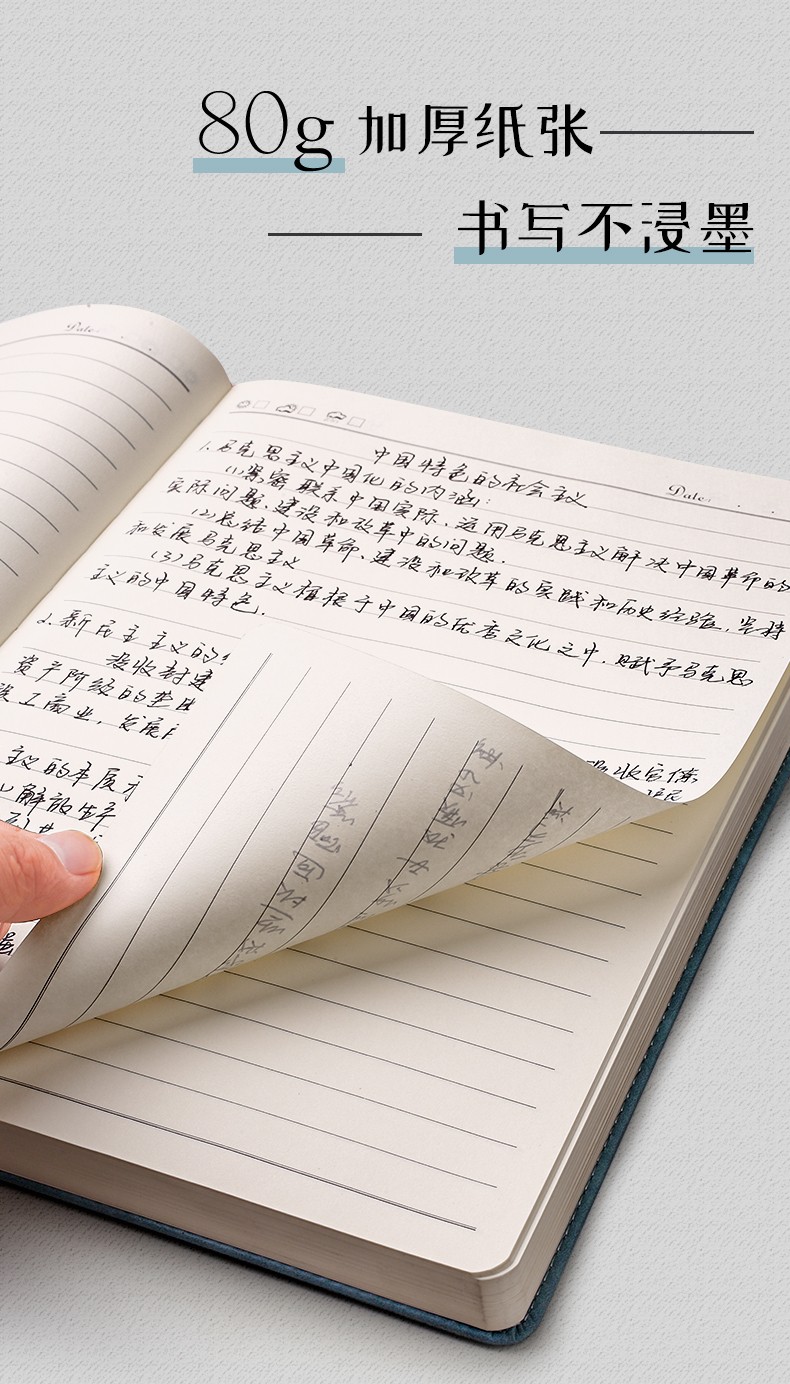 80g 加厚纸张
书写不浸墨
Date
Date
中国特色的社会主义
1.马克思主义中国化的内涵:
(1)紧密联系中国实际,运用马克思主义解决中国革命的
实际问题,建设和改革中的问题.
(2)总结中国革命、建设和改革的实践和历史经验,坚持
和发展马克思主义
(3)马克思主义植根于中国的优秀文化之中,赋予马克思
主义的中国特色.
2.新民主主义的
没收封建
资产阶级的垄
工商业,发展
主义的本质
解放生产
收官僚